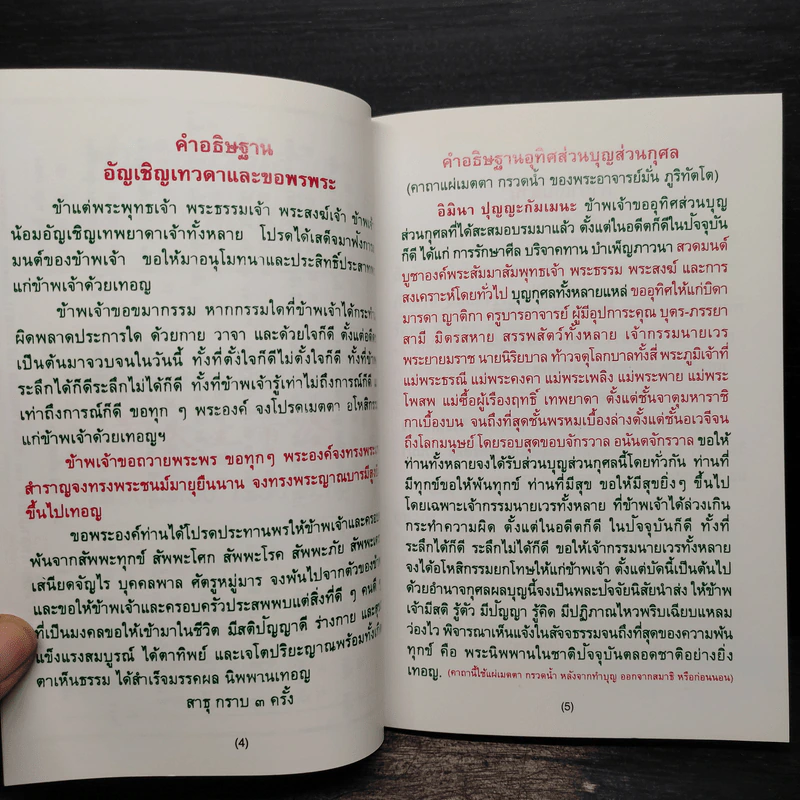 คำอธิษฐาน
อัญเชิญเทวดาและขอพรพระ
ข้าแต่พระพุทธเจ้า พระธรรมเจ้า พระสงฆ์เจ้า ข้าพเจ้า
น้อมอัญเชิญเทพยาดาเจ้าทั้งหลาย โปรดได้เสด็จมาฟังการ
มนต์ของข้าพเจ้า ขอให้มาอนุโมทนาและประสิทธิ์ประสาทพร
แก่ข้าพเจ้าด้วยเทอญ
ข้าพเจ้าขอขมากรรม หากกรรมใดที่ข้าพเจ้าได้กระทำ
ผิดพลาดประการใด ด้วยกาย วาจา และด้วยใจก็ดี ตั้งแต่อดีต
เป็นต้นมาจวบจนในวันนี้ ทั้งที่ตั้งใจก็ดีไม่ตั้งใจก็ดี ทั้งที่ข้าพเจ้า
ระลึกได้ก็ดีระลึกไม่ได้ก็ดี ทั้งที่ข้าพเจ้ารู้เท่าไม่ถึงการณ์ก็ดี
เท่าถึงการณ์ก็ดี ขอทุก ๆ พระองค์ จงโปรดเมตตา อโหสิกรรม
แก่ข้าพเจ้าด้วยเทอญฯ
ข้าพเจ้าขอถวายพระพร ขอทุกๆ พระองค์จงทรงพระ
สำราญจงทรงพระชนม์มายุยืนนาน จงทรงพระญาณบารมีสูง
ขึ้นไปเทอญ
ขอพระองค์ท่านได้โปรดประทานพรให้ข้าพเจ้าและครอบ
พ้นจากสัพพะทุกข์ สัพพะโศก สัพพะโรค สัพพะภัย สัพพะเค
เสนียดจัญไร บุคคลพาล ศัตรูหมู่มาร จงพ้นไปจากตัวของข้า
และขอให้ข้าพเจ้าและครอบครัวประสพพบแต่สิ่งที่ดี ๆ คนดี ๆ
ที่เป็นมงคลขอให้เข้ามาในชีวิต มีสติปัญญาดี ร่างกาย และ
แข็งแรงสมบูรณ์ ได้ตาทิพย์ และเจโตปริยะญาณพร้อมทั้ง
ตาเห็นธรรม ได้สำเร็จมรรคผล นิพพานเทอญ
สาธุ กราบ ๓ ครั้ง
(4)
คำอธิษฐานอุทิศส่วนบุญส่วนกุศล
(คาถาแผ่เมตตา กรวดน้ำ ของพระอาจารย์มั่น ภูริทัตโต)
อิมินา ปุญญะกัมเมนะ ข้าพเจ้าขออุทิศส่วนบุญ
ส่วนกุศลที่ได้สะสมอบรมมาแล้ว ตั้งแต่ในอดีตก็ดีในปัจจุบัน
ก็ดี ได้แก่ การรักษาศีล บริจาคทาน บำเพ็ญภาวนา สวดมนต์
บูชาองค์พระสัมมาสัมพุทธเจ้า พระธรรม พระสงฆ์ และการ
สงเคราะห์โดยทั่วไป บุญกุศลทั้งหลายแหล่ ขออุทิศให้แก่บิดา
มารดา ญาติกา ครูบารอาจารย์ ผู้มีอุปการะคุณ บุตร-ภรรยา
สามี มิตรสหาย สรรพสัตว์ทั้งหลาย เจ้ากรรมนายเวร
พระยายมราช นายนิริยบาล ท้าวจตุโลกบาลทั้งสี่ พระภูมิเจ้าที่
แม่พระธรณี แม่พระคงคา แม่พระเพลิง แม่พระพาย แม่พระ
โพสพ แม่ซื้อผู้เรืองฤทธิ์ เทพยาดา ตั้งแต่ชั้นจาตุมหาราชิ
กาเบื้องบน จนถึงที่สุดชั้นพรหมเบื้องล่างตั้งแต่ชั้นอเวจีจน
ถึงโลกมนุษย์ โดยรอบสุดขอบจักรวาล อนันตจักรวาล ขอให้
ท่านทั้งหลายจงได้รับส่วนบุญส่วนกุศลนี้โดยทั่วกัน ท่านที่
มีทุกข์ขอให้พ้นทุกข์ ท่านที่มีสุข ขอให้มีสุขยิ่งๆ ขึ้นไป
โดยเฉพาะเจ้ากรรมนายเวรทั้งหลาย ที่ข้าพเจ้าได้ล่วงเกิน
กระทำความผิด ตั้งแต่ในอดีตก็ดี ในปัจจุบันก็ดี ทั้งที่
ระลึกได้ก็ดี ระลึกไม่ได้ก็ดี ขอให้เจ้ากรรมนายเวรทั้งหลาย
จงได้อโหสิกรรมยกโทษให้แก่ข้าพเจ้า ตั้งแต่บัดนี้เป็นต้นไป
ด้วยอำนาจกุศลผลบุญนี้จงเป็นพละปัจจัยนิสัยนำส่ง ให้ข้าพ
เจ้ามีสติ รู้ตัว มีปัญญา รู้คิด มีปฏิภาณไหวพริบเฉียบแหลม
ว่องไว พิจารณาเห็นแจ้งในสัจธรรมจนถึงที่สุดของความพ้น
ทุกข์ คือ พระนิพพานในชาติปัจจุบันตลอดชาติอย่างยิ่ง
เทอญ. (คาถานี้ใช้แผ่เมตตา กรวดน้ำ หลังจากทำบุญ ออกจากสมาธิ หรือก่อนนอน)
(5)